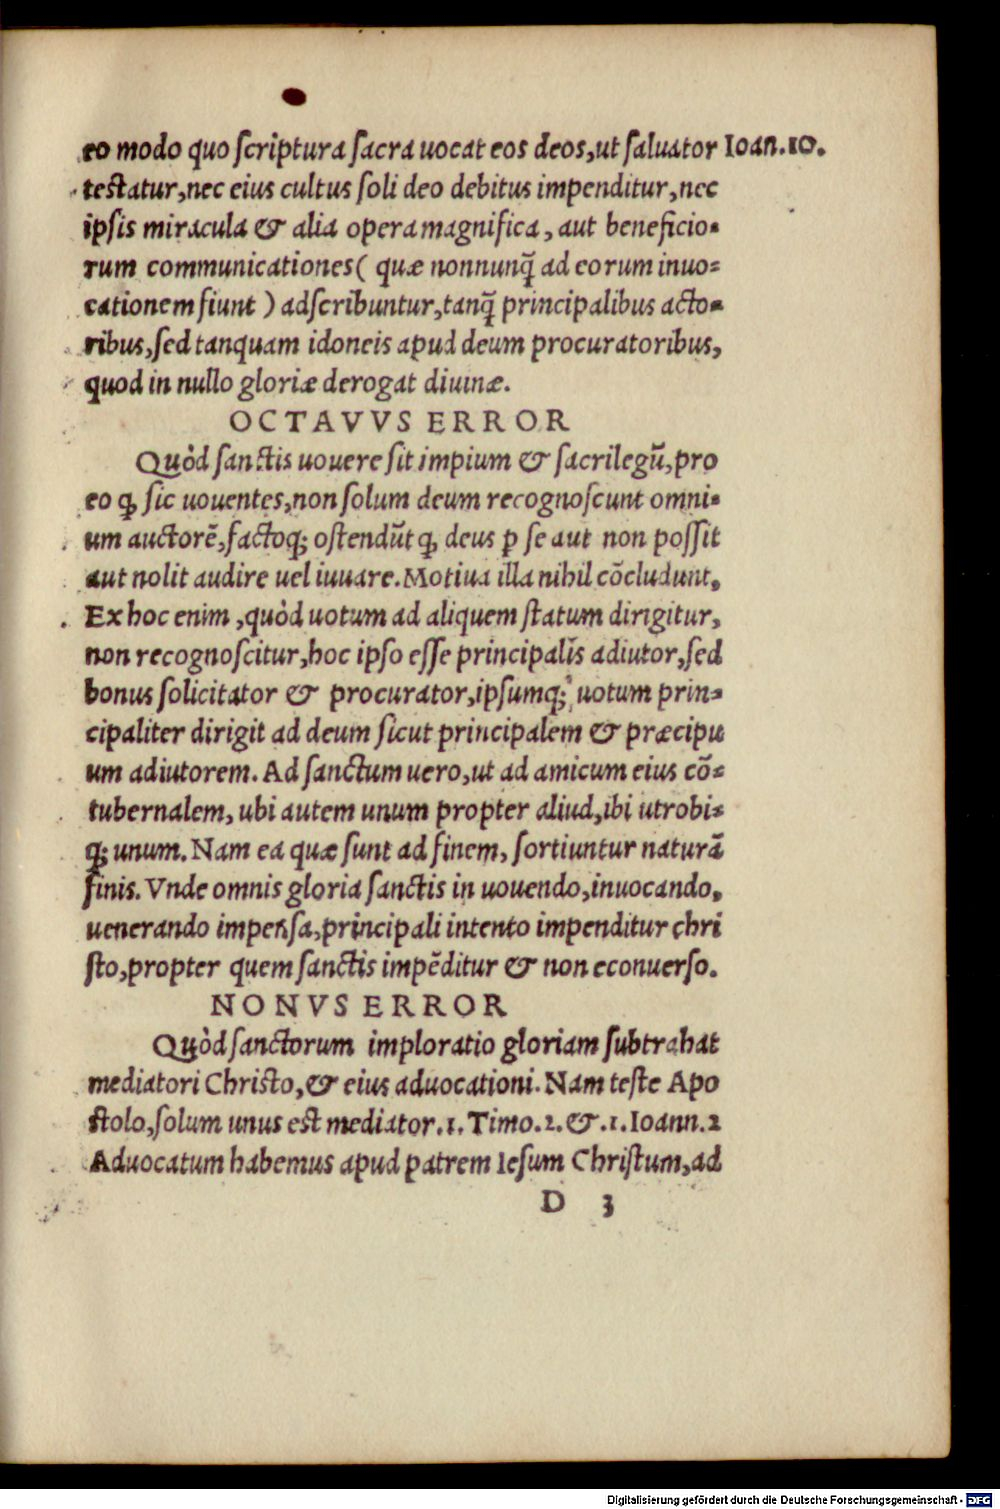 eo modo quo ſcriptura ſacra uocat eos deos,ut ſaluator Ioan.10.
teſtatur,nec eius cultus ſoli deo debitus impenditur,nec
ipſis miracula & alia opera magnifica, aut beneficio-
rum communicationes( quæ nonnunq̃ ad eorum inuo-
cationem fiunt ) adſcribuntur,tanq̃ principalibus acto-
ribus,ſed tanquam idoneis apud deum procuratoribus,
quod in nullo gloriæ derogat diuinæ.
OCTAVVS ERROR
Quòd ſanctis uouere ſit impium & ſacrilegũ,pro
eo ꝙ ſic uouentes,non ſolum deum recognoſcunt omni-
um auctorẽ,factoq; oſtendũt ꝙ deus ꝑ ſe aut non poſſit
aut nolit audire uel iuuare.Motiua illa nihil cõcludunt,
Ex hoc enim ,quòd uotum ad aliquem ſtatum dirigitur,
non recognoſcitur,hoc ipſo eſſe principalis adiutor,ſed
bonus ſolicitator & procurator,ipſumq; uotum prin-
cipaliter dirigit ad deum ſicut principalem & præcipu
um adiutorem. Ad ſanctum uero,ut ad amicum eius cõ-
tubernalem, ubi autem unum propter aliud,ibi utrobi-
q; unum. Nam ea quæ ſunt ad finem, ſortiuntur naturã
finis. Vnde omnis gloria ſanctis in uouendo,inuocando,
uenerando impenſa,principali intento impenditur chri
ſto,propter quem ſanctis impẽditur & non econuerſo.
NONVS ERROR
Quòd ſanctorum imploratio gloriam ſubtrahat
mediatori Chriſto,& eius aduocationi. Nam teſte Apo
ſtolo,ſolum unus eſt mediator.1. Timo.2.&.1.Ioann.2
Aduocatum habemus apud patrem Ieſum Chriſtum,ad
D 3
Digitalisierung gefördert durch die Deutsche Forschungsgemeinschaft - DFG